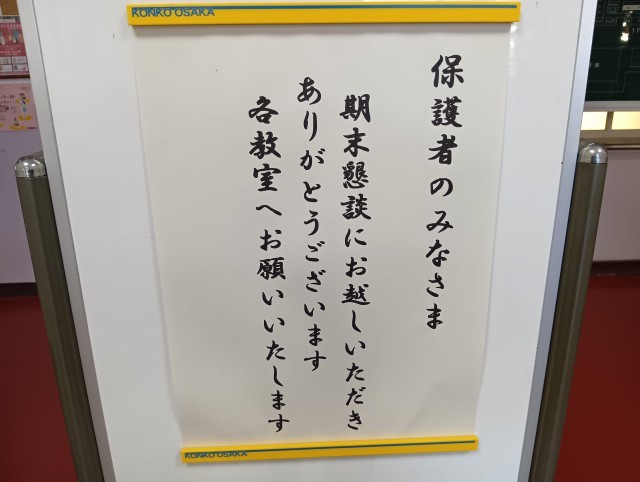 KONKO OSAKA
保護者のみなさま
期末懇談にお越しいただき
ありがとうございます
各教室へお願いいたします
KONKO OSAKA